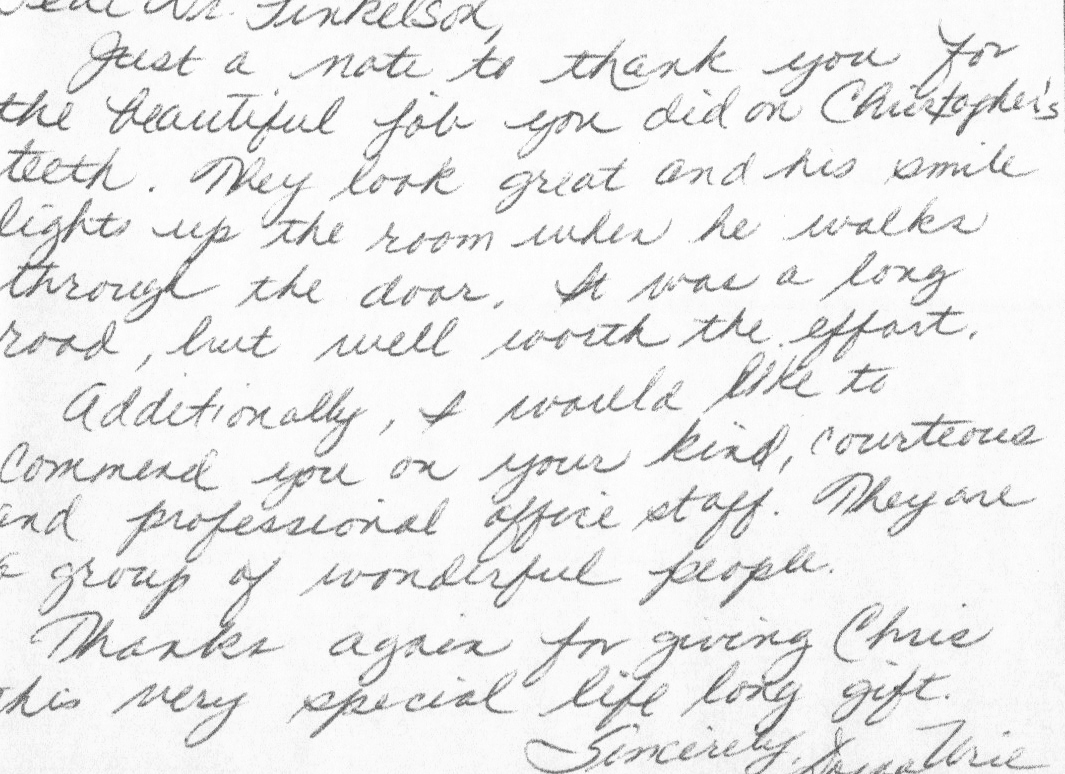 Dear Dr. Finkelson,
Just a note to thank you for
the beautiful job you did on Christopher's
teeth. They look great and his smile
lights up the room when he walks
through the door. It was a long
road, but well worth the effort.
Additionally, I would like to
commend you on your kind, courteous
and professional office staff. They are
a group of wonderful people.
Thanks again for giving Chris
this very special life long gift.
Sincerely,